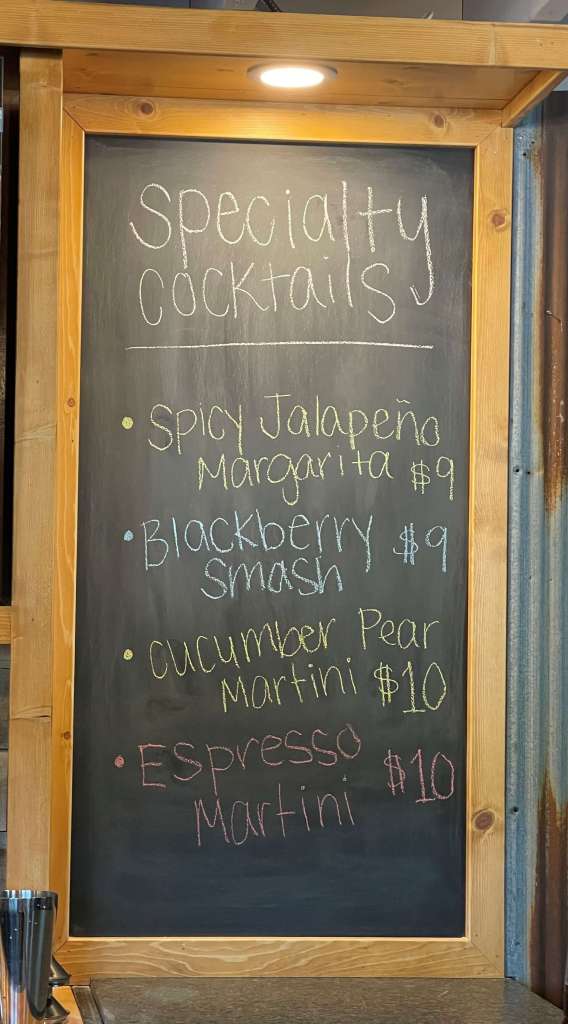 Specialty
Cocktails
• Spicy Jalapeño
Margarita $9
• Blackberry $9
Smash
• Cucumber Pear
Martini $10
• Espresso $10
Martini